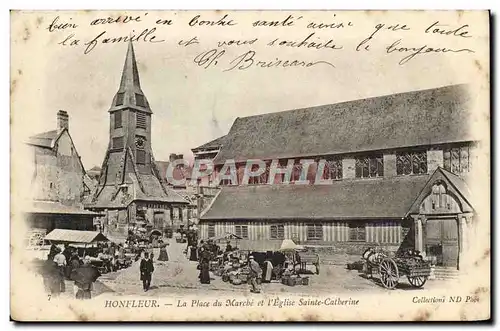 bien arrivé en bonne santé ainsi que toute
la famille et vous souhaite le bonjour
Ch Briscaro
CPARAMA
7
HONFLEUR. - La Place du Marché et l'Eglise Sainte-Catherine
Collections ND Phot